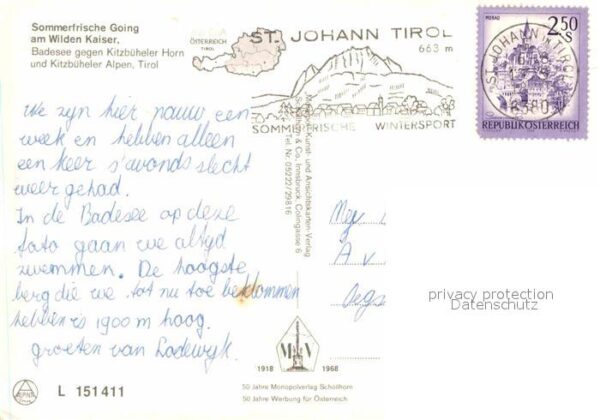 Sommerfrische Going
am Wilden Kaiser,
Badesee gegen Kitzbüheler Horn
und Kitzbüheler Alpen, Tirol
ÖSTERREICH
TIROL
ST. JOHANN TIROL
663 m
SOMMERFRISCHE WINTERSPORT
ST. JOHANN in TIROL
6380
MURAU
2.50
S
REPUBLIK ÖSTERREICH
We zyn hier nauw een
week en hebben alleen
een keer s'avonds slecht
weer gehad.
In de Badesee op deze
foto gaan we altyd
zwemmen. De hoogste
berg die we tot nu toe beklommen
hebben is 1900 m hoog.
groeten van Lodewyk.
Kunst- und Ansichtskarten-Verlag
& Co., Innsbruck, Colingasse 6
Tel. Nr. 05222/29816
Mej
A v
privacy protection
Datenschutz
M V
1918 1968
50 Jahre Monopolverlag Schöllhorn
50 Jahre Werbung für Österreich
ALPINE
L 151411